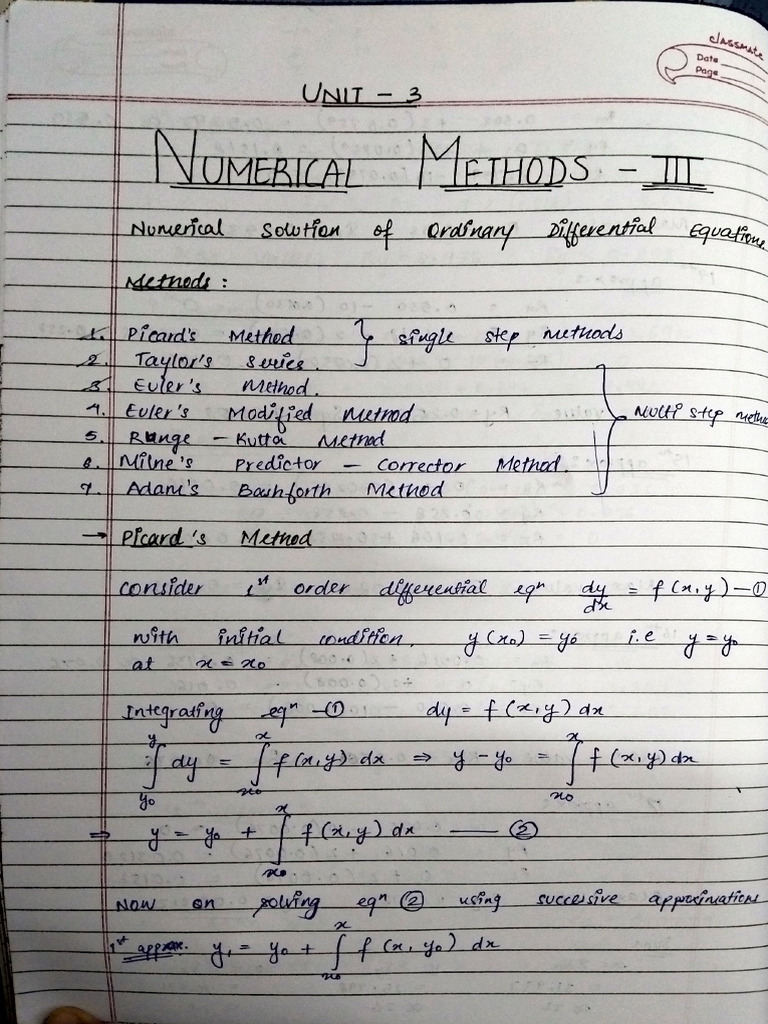 classmate
Date
Page
UNIT - 3
NUMERICAL METHODS - III
Numerical Solution of Ordinary Differential Equations.
Methods :
1. Picard's Method } single step methods
2. Taylor's series.
3. Euler's Method.
4. Euler's Modified Method } Multi step metho
5. Runge - Kutta Method
6. Milne's Predictor - Corrector Method
7. Adam's Bashforth Method
→ Picard's Method
consider 1st order differential eqn dy/dx = f(x,y) — ①
with initial condition. y(x0) = y0 i.e y = y0
at x = x0
Integrating eqn — ① dy = f(x,y) dx
∫_{y0}^{y} dy = ∫_{x0}^{x} f(x,y) dx ⇒ y - y0 = ∫_{x0}^{x} f(x,y) dx
⇒ y = y0 + ∫_{x0}^{x} f(x,y) dx — ②
Now on solving eqn ② using successive approximations
1st approx. y1 = y0 + ∫_{x0}^{x} f(x, y0) dx